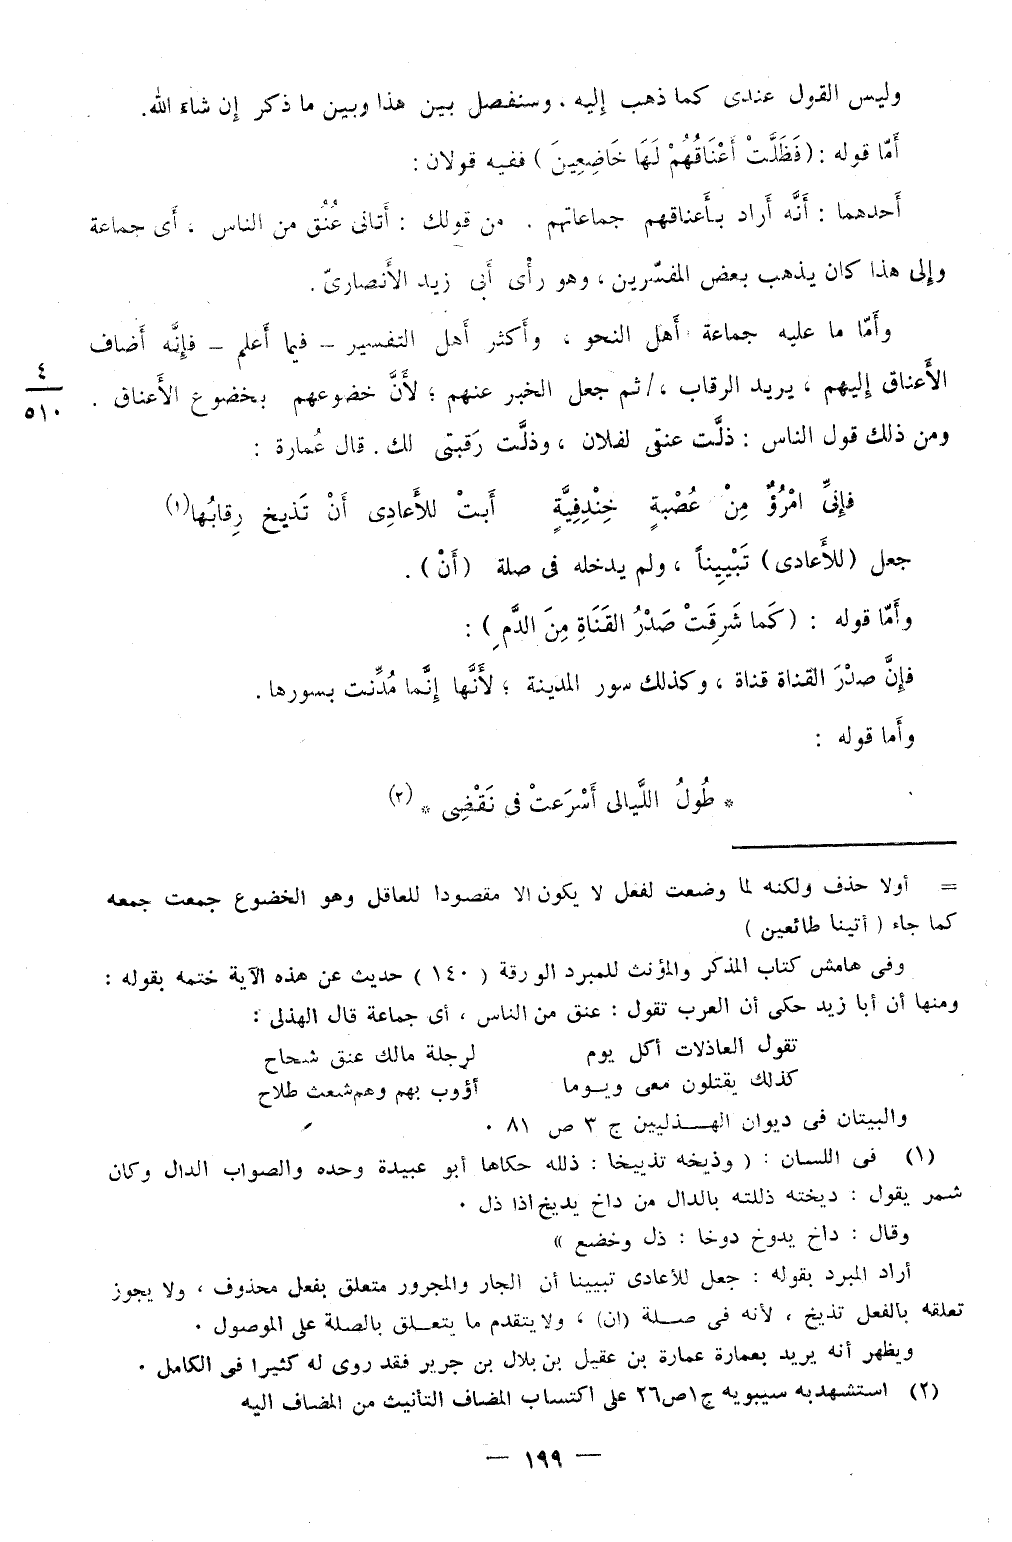 وليس القول عندى كما ذهب إليه . وسنفصل بين هذا وبين ما ذكر إن شاء الله .
أَمّا قوله : ( فَظَلَّتْ أَعْنَاقُهُمْ لَهَا خَاضِعِينَ ) ففيه قولان :
أَحدهما : أَنَّه أَراد بأَعناقهم جماعاتهم . من قولك : أَتانى عُنُق من الناس ، أَى جماعة
وإِلى هذا كان يذهب بعض المفسّرين ، وهو رأْى أَبى زيد الأَنصارىّ .
وأَمّا ما عليه جماعة أَهل النحو ، وأَكثر أَهل التفسير – فيما أَعلم – فإِنَّه أَضاف
الأَعناق إِليهم ، يريد الرقاب ،/ ثم جعل الخبر عنهم ؛ لأَنَّ خضوعهم بخضوع الأَعناق .
٤
٥١٠
ومن ذلك قول الناس : ذلَّت عنقى لفلان ، وذلَّت رَقبتى لك . قال عُمارة :
فإِنىِّ امْرُؤٌ مِنْ عُصْبةٍ خِنْدِفِيَّةٍ أَبتْ للأَعادِى أَنْ تَذيخ رِقابُها(١)
جعل (للأَعادى) تَبْيِيناً ، ولم يدخله فى صلة (أَنْ) .
وأَمّا قوله : (كَما شَرِقَتْ صَدْرُ القَنَاةِ مِنَ الدَّمِ) :
فإِنَّ صدْرَ القناة قناة ، وكذلك سور المدينة ؛ لأَنَّها إِنَّما مُدِّنت بسورها .
وأَما قوله :
* طُولُ اللَّيالى أَسْرَعتْ فى نَقْضِى * (٢)
= أولا حذف ولكنه لما وضعت لفعل لا يكون الا مقصودا للعاقل وهو الخضوع جمعت جمعه
كما جاء ( أتينا طائعين )
وفى هامش كتاب المذكر والمؤنث للمبرد الورقة ( ١٤٠ ) حديث عن هذه الآية ختمه بقوله :
ومنها أن أبا زيد حكى أن العرب تقول : عنق من الناس ، أى جماعة قال الهذلى :
تقول العاذلات أكل يوم لرجلة مالك عنق شحاح
كذلك يقتلون معى ويوما أؤوب بهم وهم شعث طلاح
والبيتان فى ديوان الهذليين ج ٣ ص ٨١ .
(١) فى اللسان : ( وذيخه تذييخا : ذلله حكاها أبو عبيدة وحده والصواب الدال وكان
شمر يقول : ديخته ذللته بالدال من داخ يديخ اذا ذل .
وقال : داخ يدوخ دوخا : ذل وخضع »
أراد المبرد بقوله : جعل للأعادى تبيينا أن الجار والمجرور متعلق بفعل محذوف ، ولا يجوز
تعلقه بالفعل تذيخ ، لأنه فى صلة (ان) ، ولا يتقدم ما يتعلق بالصلة على الموصول .
ويظهر أنه يريد بعمارة عمارة بن عقيل بن بلال بن جرير فقد روى له كثيرا فى الكامل .
(٢) استشهد به سيبويه ج١ ص٢٦ على اكتساب المضاف التأنيث من المضاف اليه
— ١٩٩ —